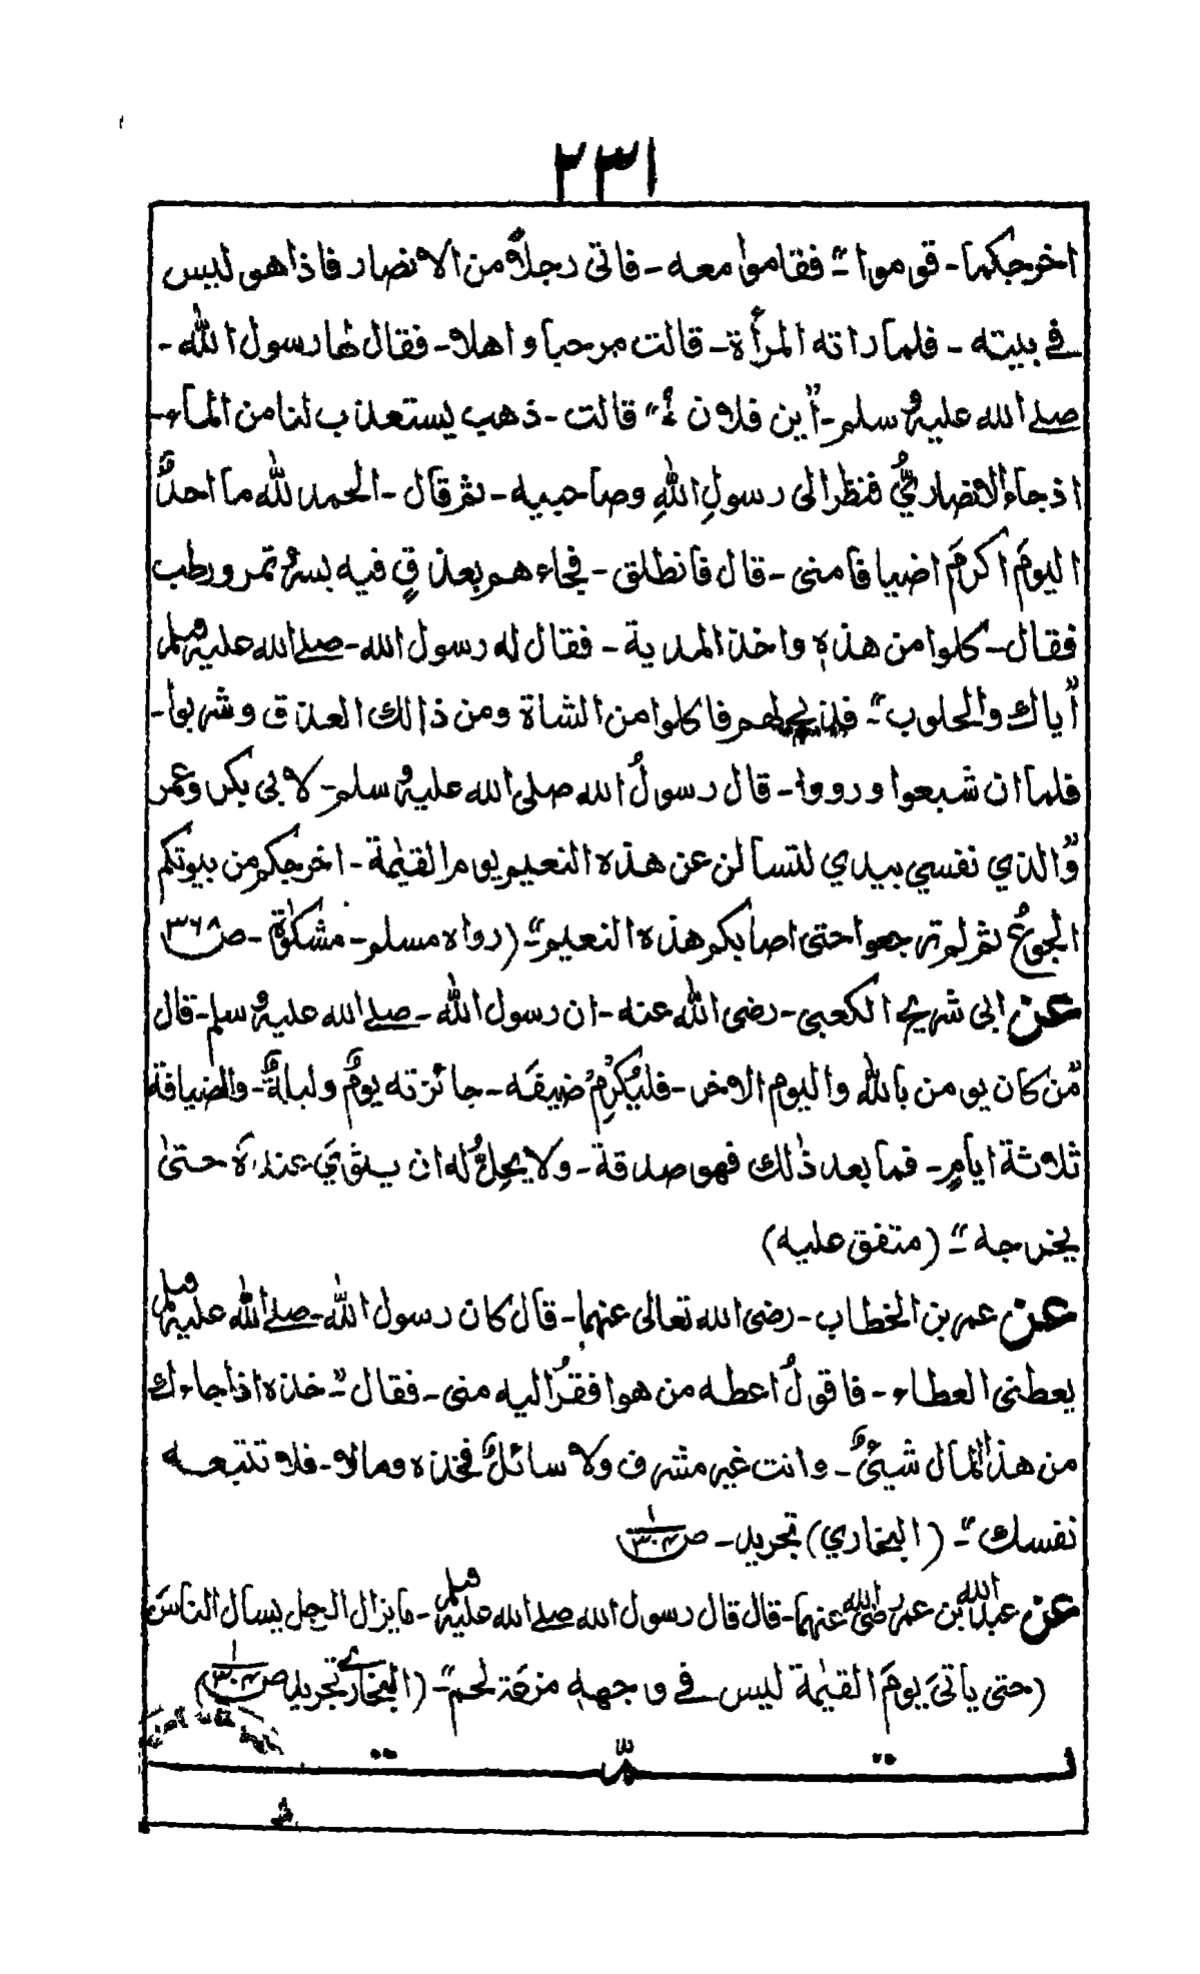 ٢٣١
اخرجكما۔ قوموا"۔ فقاموا معه۔ فاتى رجلاً من الانصار فاذا هو ليس
في بيته۔ فلما راته المرأة۔ قالت مرحبا واهلا۔ فقال لها رسول الله۔
صلے الله عليه وسلم۔ "أين فلان ؟" قالت۔ ذهب يستعذب لنا من الماء۔
اذ جاء الانصاريُّ فنظر الى رسولِ اللهِ وصاحبيه۔ ثم قال۔ الحمد لله ما احدٌ
اليومَ اكرمَ اضيافا منى۔ قال فانطلق۔ فجاءهم بعذقٍ فيه بسرٌ تمر ورطب
فقال۔ كلوا من هذهٖ واخذ المدية۔ فقال له رسول الله۔ صلے الله عليه وسلم
"أياك والحلوب"۔ فذبح لهم فاكلوا من الشاة ومن ذالك العذق وشربوا۔
فلما ان شبعوا ورووا۔ قال رسولُ الله صلى الله عليه وسلم۔ لابى بكر وعمر
"والذي نفسي بيدي لتسالن عن هذه النعيم يوم القيٰمة۔ اخرجكم من بيوتكم
الجوعُ ثم لم ترجعوا حتى اصابكم هذه النعيم"۔ (رواه مسلم۔ مشكوٰة۔ ص ٣٦٨
عن ابى شريح الكعبى۔ رضى الله عنه۔ ان رسول الله۔ صلے الله عليه وسلم۔ قال
"من كان يومن بالله واليوم الاخر۔ فليُكرِمْ ضيفَه۔ جائزته يومٌ وليلةٌ۔ والضيافة
ثلاثة ايامٍ۔ فما بعد ذٰلك فهو صدقة۔ ولا يحِلُّ له ان يثوىَ عنده حتىٰ
يخرجه"۔ (متفق عليه)
عن عمر بن الخطاب۔ رضى الله تعالى عنهما۔ قال كان رسول الله۔ صلے الله عليه وسلم
يعطنى العطاء۔ فاقولُ اعطه من هو افقرُ اليه منى۔ فقال"۔ خذه اذا جاءك
من هذا المال شيئىٌ۔ وانت غير مشرف ولا سائلٌ فخذه ومالا۔ فلا تتبعه
نفسك"۔ (البخاري) تجريد۔ ص ١/٣٠٤
عن عبد الله بن عمر رضى الله عنهما۔ قال قال رسول الله صلے الله عليه وسلم۔ مايزال الرجل يسال الناسَ
(حتى يأتىَ يومَ القيٰمة ليس فے وجههٖ مزعة لحم"۔ (البخارے تجريد ص ١/٣٠٤)
تمت